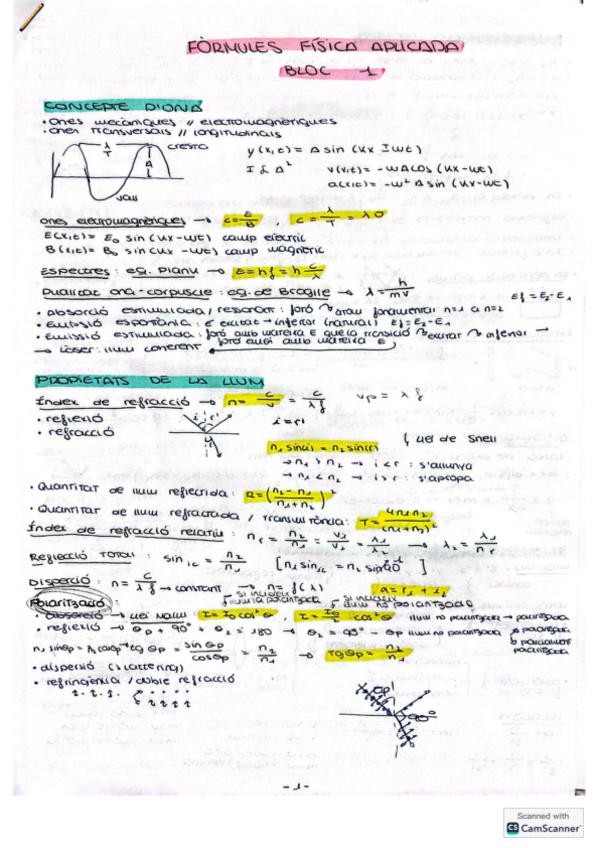 FÒRMULES FÍSICA APLICADA
BLOC 1
CONCEPTE D'ONA
• ones mecàniques // electromagnètiques
• ones transversals // longitudinals
λ
T
cresta
A
vall
y(x,t) = A sin (kx ± wt)
I α A²
v(x,t) = -wA cos (kx - wt)
a(x,t) = -w² A sin (kx - wt)
ones electromagnètiques → c = E/B , c = λ/T = λ υ
E(x,t) = E₀ sin (kx - wt) camp elèctric
B(x,t) = B₀ sin (kx - wt) camp magnètic
Espectres: eq. Planck → E = hf = h c/λ
Dualitat ona-corpuscle: eq. de Broglie → λ = h/mv
• Absorció estimulada / ressonant: fotó ↷ àtom fonamental n=1 a n=2 Ef = E₂ - E₁
• Emissió espontània: e⁻ excitat → inferior (natural) Ef = E₂ - E₁
• Emissió estimulada: fotó amb mateixa E que la transició ↷ excitat ↷ inferior →
→ làser: llum coherent fotó emès amb mateixa E
PROPIETATS DE LA LLUM
Índex de refracció → n = c/v = c/λf vp = λf
• reflexió
• refracció
i r'
r
i = r'
n₁ sin(i) = n₂ sin(r) llei de Snell
→ n₁ > n₂ → i < r : s'allunya
→ n₁ < n₂ → i > r : s'apropa
• Quantitat de llum reflectida: R = (n₂ - n₁ / n₁ + n₂)²
• Quantitat de llum refractada / Transmitància: T = 4n₁n₂ / (n₁ + n₂)²
Índex de refracció relatiu: nr = n₂/n₁ = v₁/v₂ = λ₁/λ₂ → λ₂ = λ₁/nr
Reflecció total: sin ic = n₂/n₁ [n₁ sin ic = n₂ sin 90°]
Disperció: n = c/λf → constant → n = f(λ) a = r₁ + r₂
Polarització:
si incideix llum ja polaritzada
si incideix llum no polaritzada
• absorció → llei Malus I = I₀ cos² θ , I = I₀/2 cos² θ llum no polaritzada → polaritzada
• reflexió → θp + 90° + θ₂ = 180 → θ₂ = 90° - θp llum no polaritzada → polaritzada o parcialment polaritzada
n₁ sin θp = n₂ cos θp tg θp = sin θp / cos θp = n₂/n₁ → Tg θp = n₂/n₁
• dispersió (scattering)
• refringència / doble refracció
θp
90°
- 1 -
Scanned with
CS CamScanner